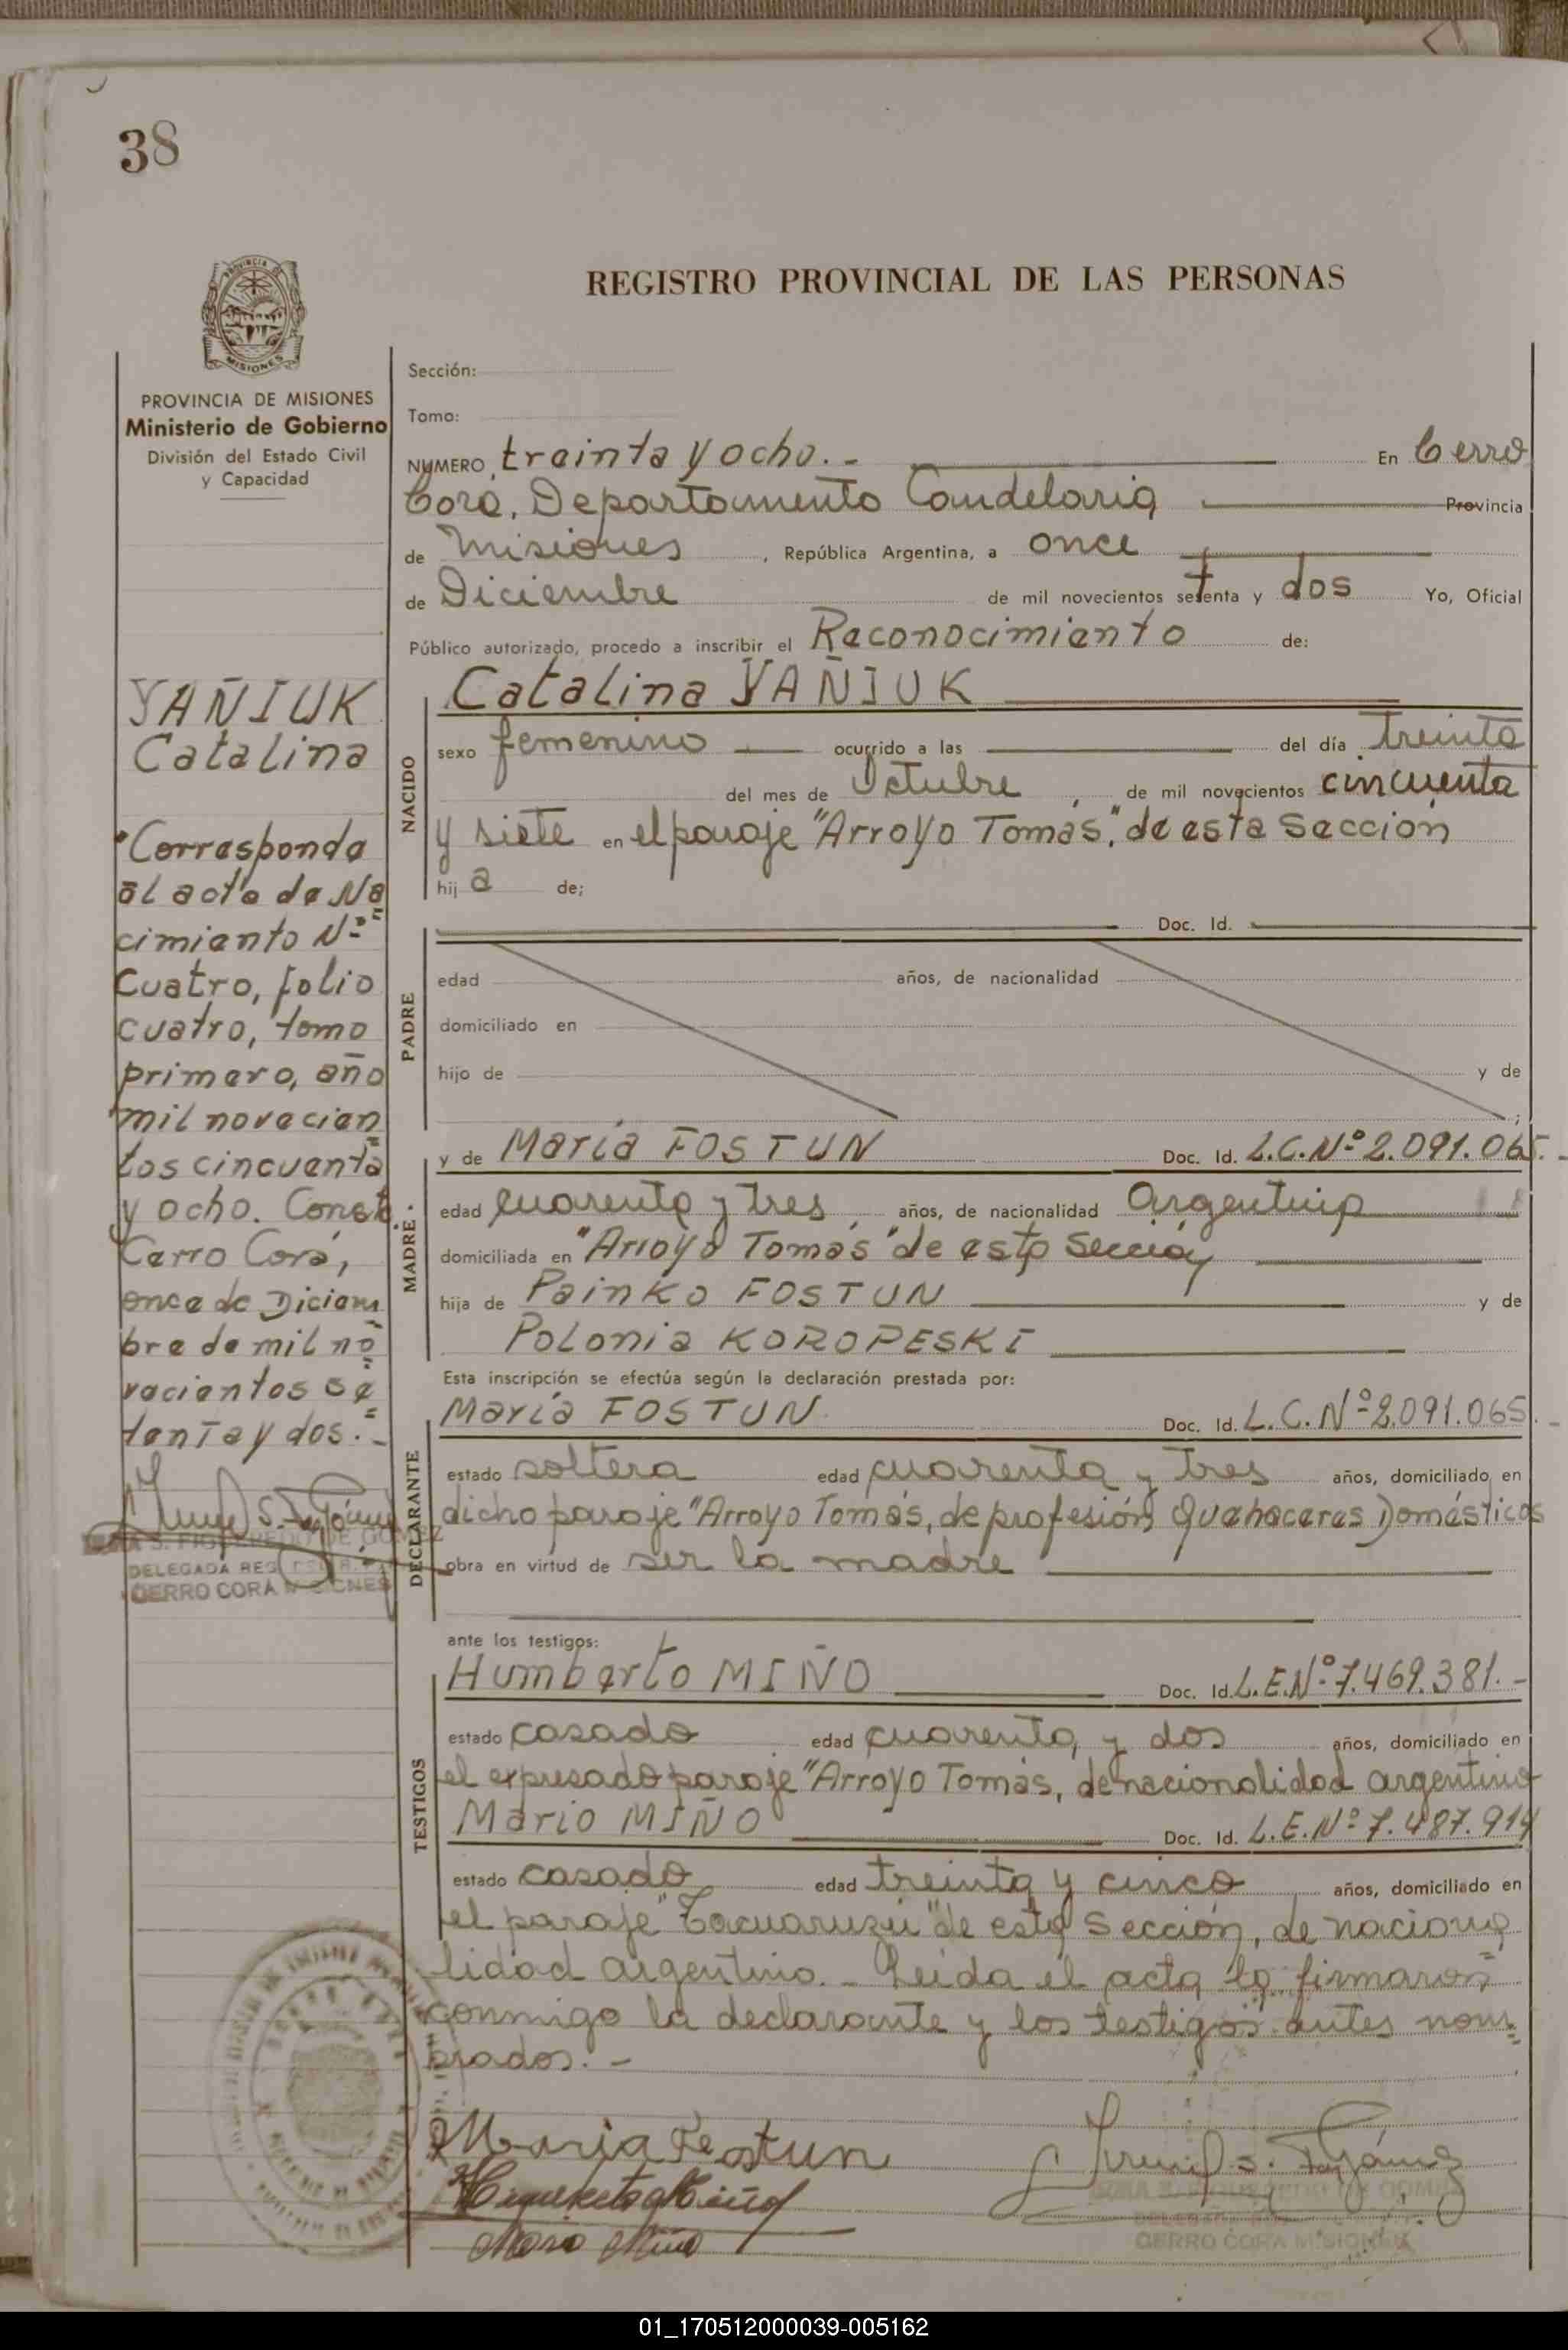 38
REGISTRO PROVINCIAL DE LAS PERSONAS
MISIONES
PROVINCIA DE MISIONES
Ministerio de Gobierno
División del Estado Civil
y Capacidad
YAÑIUK
Catalina
Corresponde
al acta de Na
cimiento Nº
cuatro, folio
cuatro, tomo
primero, año
mil novecien
tos cincuenta
y ocho. Const
Cerro Corá,
once de Diciem
bre de mil no
vecientos se
tenta y dos.-
DELEGADA REG
CERRO CORA MISIONES
Sección:
Tomo:
NUMERO treinta y ocho.- En Cerro
Corá, Departamento Candelaria Provincia
de Misiones, República Argentina, a once
de Diciembre de mil novecientos setenta y dos Yo, Oficial
Público autorizado, procedo a inscribir el Reconocimiento de:
NACIDO
Catalina YAÑIUK
sexo femenino ocurrido a las del día treinta
del mes de Octubre, de mil novecientos cincuenta
y siete en el paraje "Arroyo Tomás," de esta Sección
hij a de;
PADRE
Doc. Id.
edad años, de nacionalidad
domiciliado en
hijo de y de
;
MADRE
y de María FOSTUN Doc. Id. L.C.Nº 2.091.065.-
edad cuarenta y tres años, de nacionalidad argentina
domiciliada en "Arroyo Tomás" de esta Sección
hija de Painko FOSTUN y de
Polonia KOROPESKI
Esta inscripción se efectúa según la declaración prestada por:
DECLARANTE
María FOSTUN Doc. Id. L.C.Nº 2.091.065.-
estado soltera edad cuarenta y tres años, domiciliado en
dicho paraje "Arroyo Tomás, de profesión Quehaceres Domésticos
obra en virtud de ser la madre
ante los testigos:
TESTIGOS
Humberto MIÑO Doc. Id. L.E.Nº 7.469.381.-
estado casado edad cuarenta y dos años, domiciliado en
el expresado paraje "Arroyo Tomás, de nacionalidad argentino
Mario MIÑO Doc. Id. L.E.Nº 7.487.914
estado casado edad treinta y cinco años, domiciliado en
el paraje "Tacuaruzú" de esta Sección, de naciona
lidad argentino.- Leída el acta la firmaron
conmigo la declarante y los testigos antes nom
brados.-
Maria Fostun
Mario Miño
CERRO CORA MISIONES
01_170512000039-005162